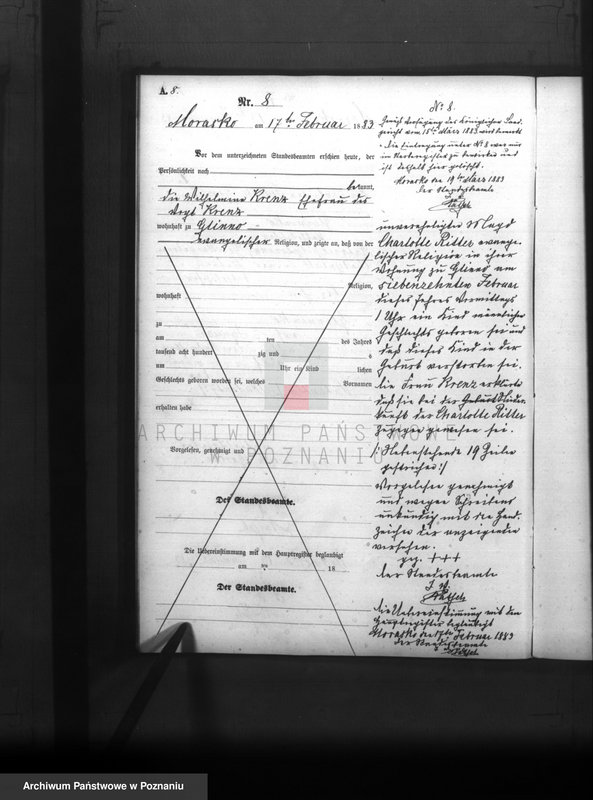 A. 8.
Nr. 8
Morasko am 17ten Februar 1883
Vor dem unterzeichneten Standesbeamten erschien heute, der
Persönlichkeit nach
bekannt,
die Wilhelmine Krenz Ehefrau des
Vogt Krenz
wohnhaft zu Glinno
evangelischer Religion, und zeigte an, daß von der
Religion,
wohnhaft
zu
am ten des Jahres
tausend acht hundert zig und
um Uhr ein Kind lichen
Geschlechts geboren worden sei, welches Vornamen
erhalten habe
Vorgelesen, genehmigt und
Der Standesbeamte.
Die Uebereinstimmung mit dem Hauptregister beglaubigt
am ten 18
Der Standesbeamte.
No 8.
Gemäß Verfügung des Königlichen Land-
gericht vom 15ten März 1883 wird bemerkt
die Eintragung unter No 8 war nur
im Nebenregister zu bewirken und
ist deshalb hier gelöscht.
Morasko den 19ten März 1883
Der Standesbeamte
unverehelichte Magd
Charlotte Ritter evange-
lischer Religion in ihrer
Wohnung zu Glinno am
siebenzehnten Februar
dieses Jahres Vormittags
1 Uhr ein Kind männlichen
Geschlechts geboren sei und
daß dieses Kind in der
Geburt verstorben sei.
die Frau Krenz erklärte
daß sie bei der Nieder-
kunft der Charlotte Ritter
zugegen gewesen sei.
/: Nebenstehende 19 Zeilen
gestrichen :/
Vorgelesen genehmigt
und wegen Schreibens
unkundig mit den Hand-
zeichen der anzeigenden
versehen.
gez. +++
der Standesbeamte
die Uebereinstimmung mit dem
Hauptregister beglaubigt
Morasko den 17ten Februar 1883
der Standesbeamte
ARCHIWUM PAŃSTWOWE
W POZNANIU
Archiwum Państwowe w Poznaniu